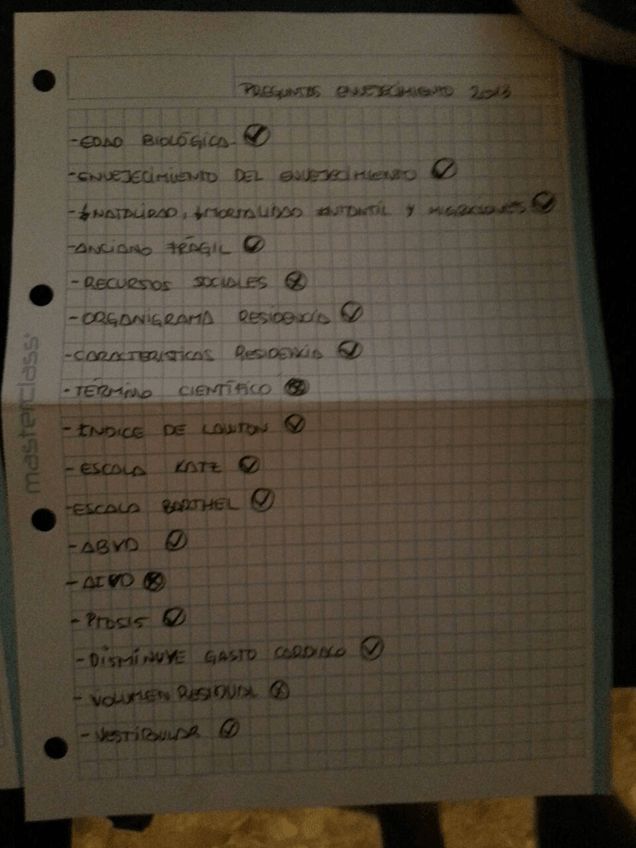 PREGUNTAS ENVEJECIMIENTO 2013
-EDAD BIOLÓGICA.
-ENVEJECIMIENTO DEL ENVEJECIMIENTO
-↓NATALIDAD, ↓MORTALIDAD INFANTIL Y MIGRACIONES
-ANCIANO FRÁGIL
-RECURSOS SOCIALES
-ORGANIGRAMA RESIDENCIA
-CARACTERISTICAS RESIDENCIA
-TÉRMINO CIENTÍFICO
-ÍNDICE DE LAWTON
-ESCALA KATZ
-ESCALA BARTHEL
-ABVD
-AIVD
-PTOSIS
-DISMINUYE GASTO CARDIACO
-VOLUMEN RESIDUAL
-VESTIBULAR
masterclass